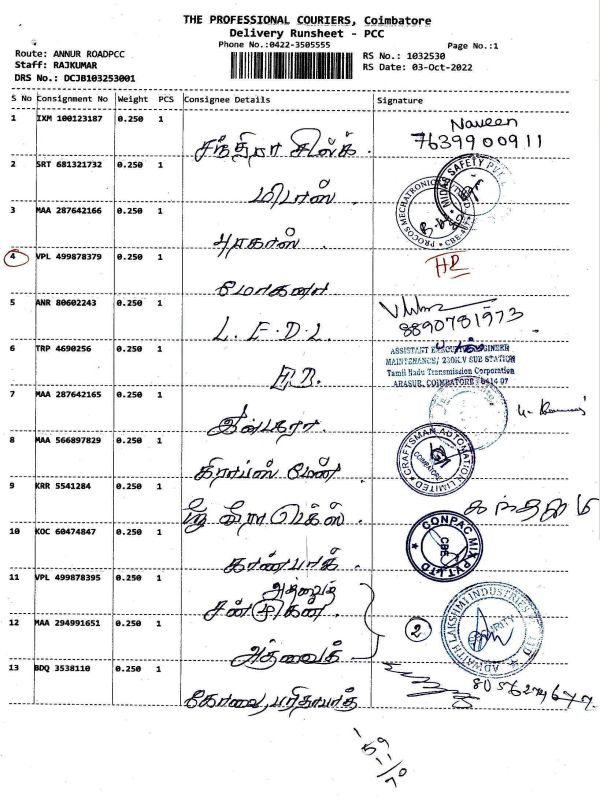 THE PROFESSIONAL COURIERS, Coimbatore
Delivery Runsheet - PCC
Phone No.:0422-3505555 Page No.:1
Route: ANNUR ROADPCC RS No.: 1032530
Staff: RAJKUMAR RS Date: 03-Oct-2022
DRS No.: DCJB103253001
S No Consignment No Weight PCS Consignee Details Signature
1 IXM 100123187 0.250 1
Naveen
சந்திரா சில்க். 7639900911
2 SRT 681321732 0.250 1
மிடாஸ் MIDAS SAFETY PVT
3 MAA 287642166 0.250 1
PROCOS MECHATRONIC CBE
4 VPL 499878379 0.250 1
மோகனா
5 ANR 80602243 0.250 1
L.E.D.L. 8890781973
6 TRP 4690256 0.250 1
ASSISTANT EXECUTIVE ENGINEER
MAINTENANCE/ 230K.V SUB STATION
Tamil Nadu Transmission Corporation
E.B. ARASUR, COIMBATORE - 641407
7 MAA 287642165 0.250 1
8 MAA 566897829 0.250 1
CRAFTSMAN AUTOMATION LIMITED COIMBATORE
கிராப்ஸ் மேன்
9 KRR 5541284 0.250 1
10 KOC 60474847 0.250 1
CONPAC MIX PVT LTD CBE
கான்பாக்
11 VPL 499878395 0.250 1
அத்வைத்
சண்முகன்.
12 MAA 294991651 0.250 1
2 ADWAITH LAKSHMI INDUSTRIES LTD SECURITY
அத்வைத்
13 BDQ 3538110 0.250 1
8056274677
கோவை, பரிதாபாத்
1
59
11/70